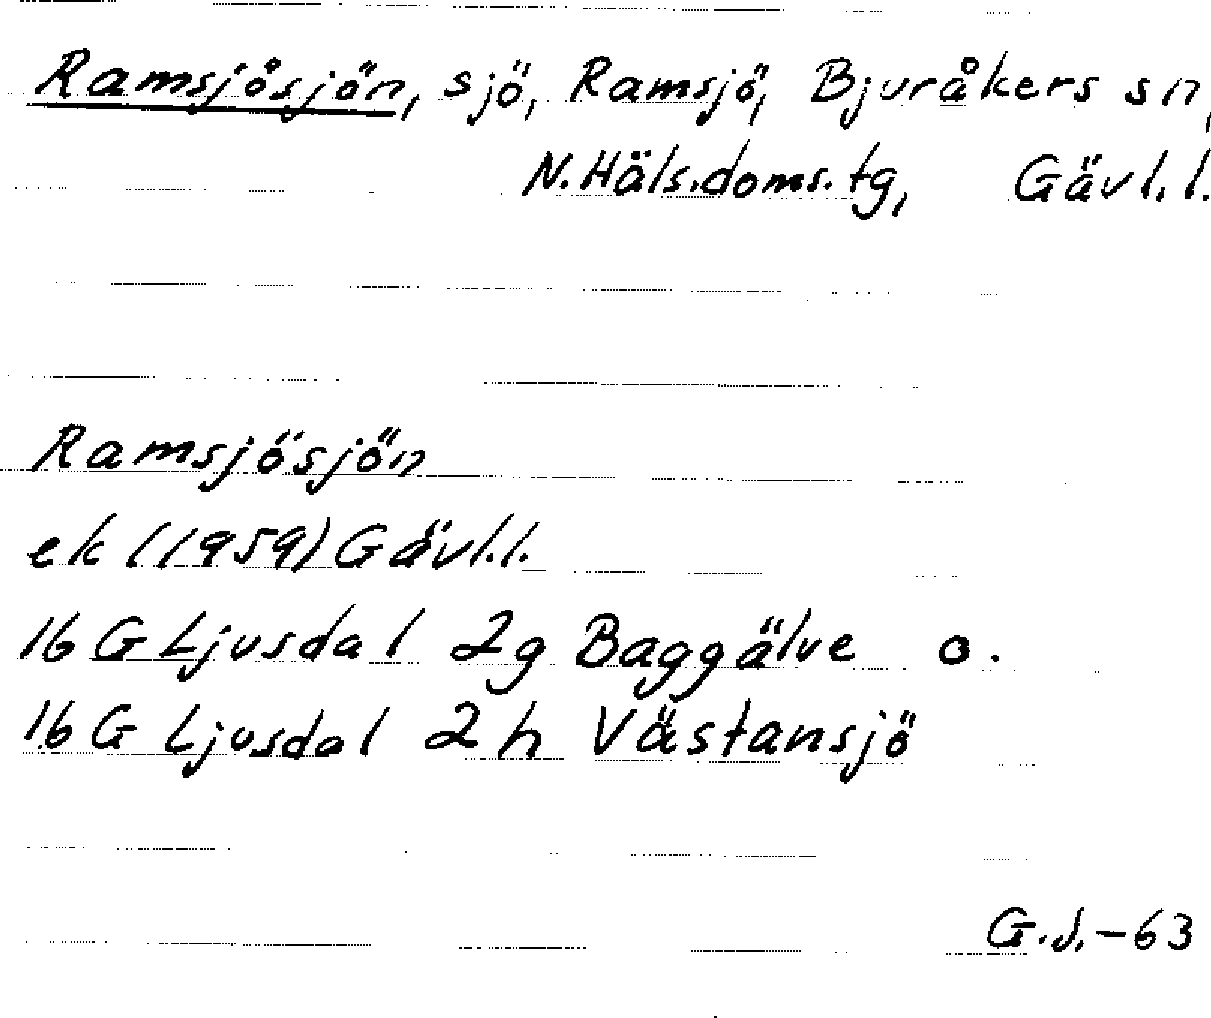 Ramsjösjön, sjö, Ramsjö, Bjuråkers sn,
N. Häls. doms. tg, Gävl. l.
Ramsjösjön
ek (1959) Gävl. l.
16 G Ljusdal 2g Baggälve o.
16 G Ljusdal 2h Västansjö
G.J.-63